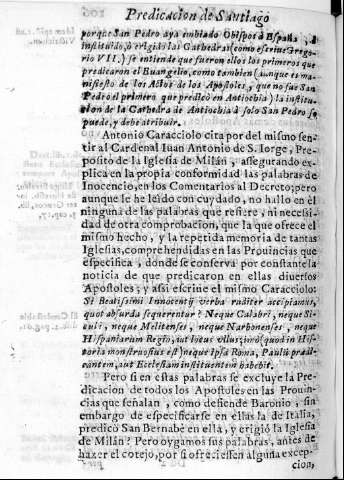 Predicacion de Santiago
porque San Pedro aya embiado Obispos à España, ò
instituido, ò erigido las Cathedrales (como escrive Grego-
rio VII.) se entiende que fueron ellos los primeros que
predicaron el Euangelio, como tambien (aunque es ma-
nifiesto de los Actos de los Apostoles, que no fue San
Pedro el primero que predicò en Antiochia) la institu-
cion de la Cathedra de Antiochia à solo San Pedro se
puede, y debe atribuir.
Antonio Caracciolo cita por del mismo sen-
tir al Cardenal Iuan Antonio de S. Iorge, Pre-
posito de la Iglesia de Milàn, assegurando ex-
plica en la propia conformidad las palabras de
Inocencio, en los Comentarios al Decreto; pero
aunque le he leìdo con cuydado, no hallo en èl
ninguna de las palabras que refiere, ni necessi-
dad de otra comprobacion, que la que ofrece el
mismo hecho, y la repetida memoria de tantas
Iglesias, comprehendidas en las Prouincias que
especifica, donde se conserva por constante la
noticia de que predicaron en ellas diuersos
Apostoles; y assi escrive el mismo Caracciolo:
Si Beatissimi Innocentij verba ruditer accipiamus,
quot absurda sequerentur? Neque Calabri, neque Si-
culi, neque Melitenses, neque Narbonenses, neque
Hispaniarum Regio, aut locus vllus; imò (quod in His-
toria monstrosius est) neque ipsa Roma, Paulũ prædi-
cantem, aut Ecclesiam instituentem habebit.
Pero si en estas palabras se excluye la Pre-
dicacion de todos los Apostoles en las Prouin-
cias que señalan, como defiende Baronio, sin
embargo de especificarse en ellas la de Italia,
predicò San Bernabe en ella, y erigiò la Iglesia
de Milàn? Pero oygamos sus palabras, antes de
hazer el cotejo, por si ofreciessen alguna excep-
cion,